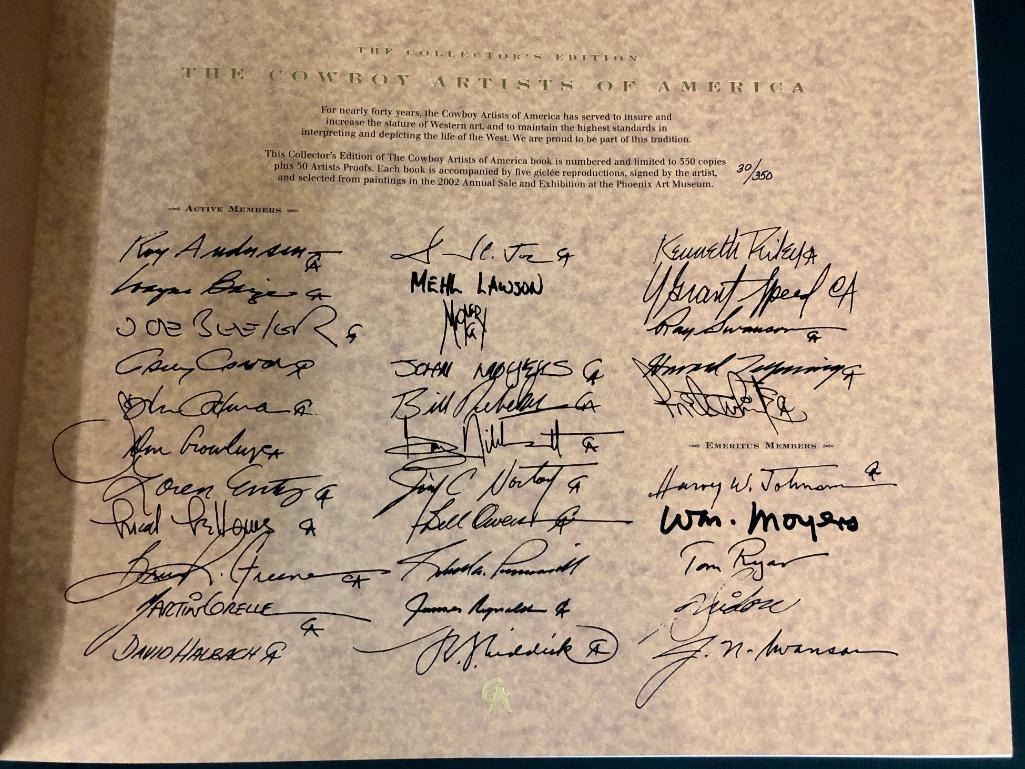 THE COLLECTOR'S EDITION
THE COWBOY ARTISTS OF AMERICA
For nearly forty years, the Cowboy Artists of America has served to insure and
increase the stature of Western art, and to maintain the highest standards in
interpreting and depicting the life of the West. We are proud to be part of this tradition.
This Collector's Edition of The Cowboy Artists of America book is numbered and limited to 350 copies
plus 50 Artists Proofs. Each book is accompanied by five giclée reproductions, signed by the artist,
and selected from paintings in the 2002 Annual Sale and Exhibition at the Phoenix Art Museum.
30/350
ACTIVE MEMBERS
Roy Andersen CA
Wayne Baize CA
JOE BEELER CA
CA
John Coleman CA
Don Crowley CA
Loren Entz CA
CA
Bruce R. Greene CA
MARTIN GRELLE CA
DAVID HALBACH CA
CA
MEHL LAWSON
CA
JOHN MOYERS CA
Bill CA
CA
Jim C Norton CA
Bill Owen CA
James Reynolds CA
CA
Kenneth Riley CA
U Grant Speed CA
Ray Swanson CA
Howard Terpning CA
CA
EMERITUS MEMBERS
Harvey W. Johnson CA
Wm. Moyers
Tom Ryan
J. N. Swanson
CA